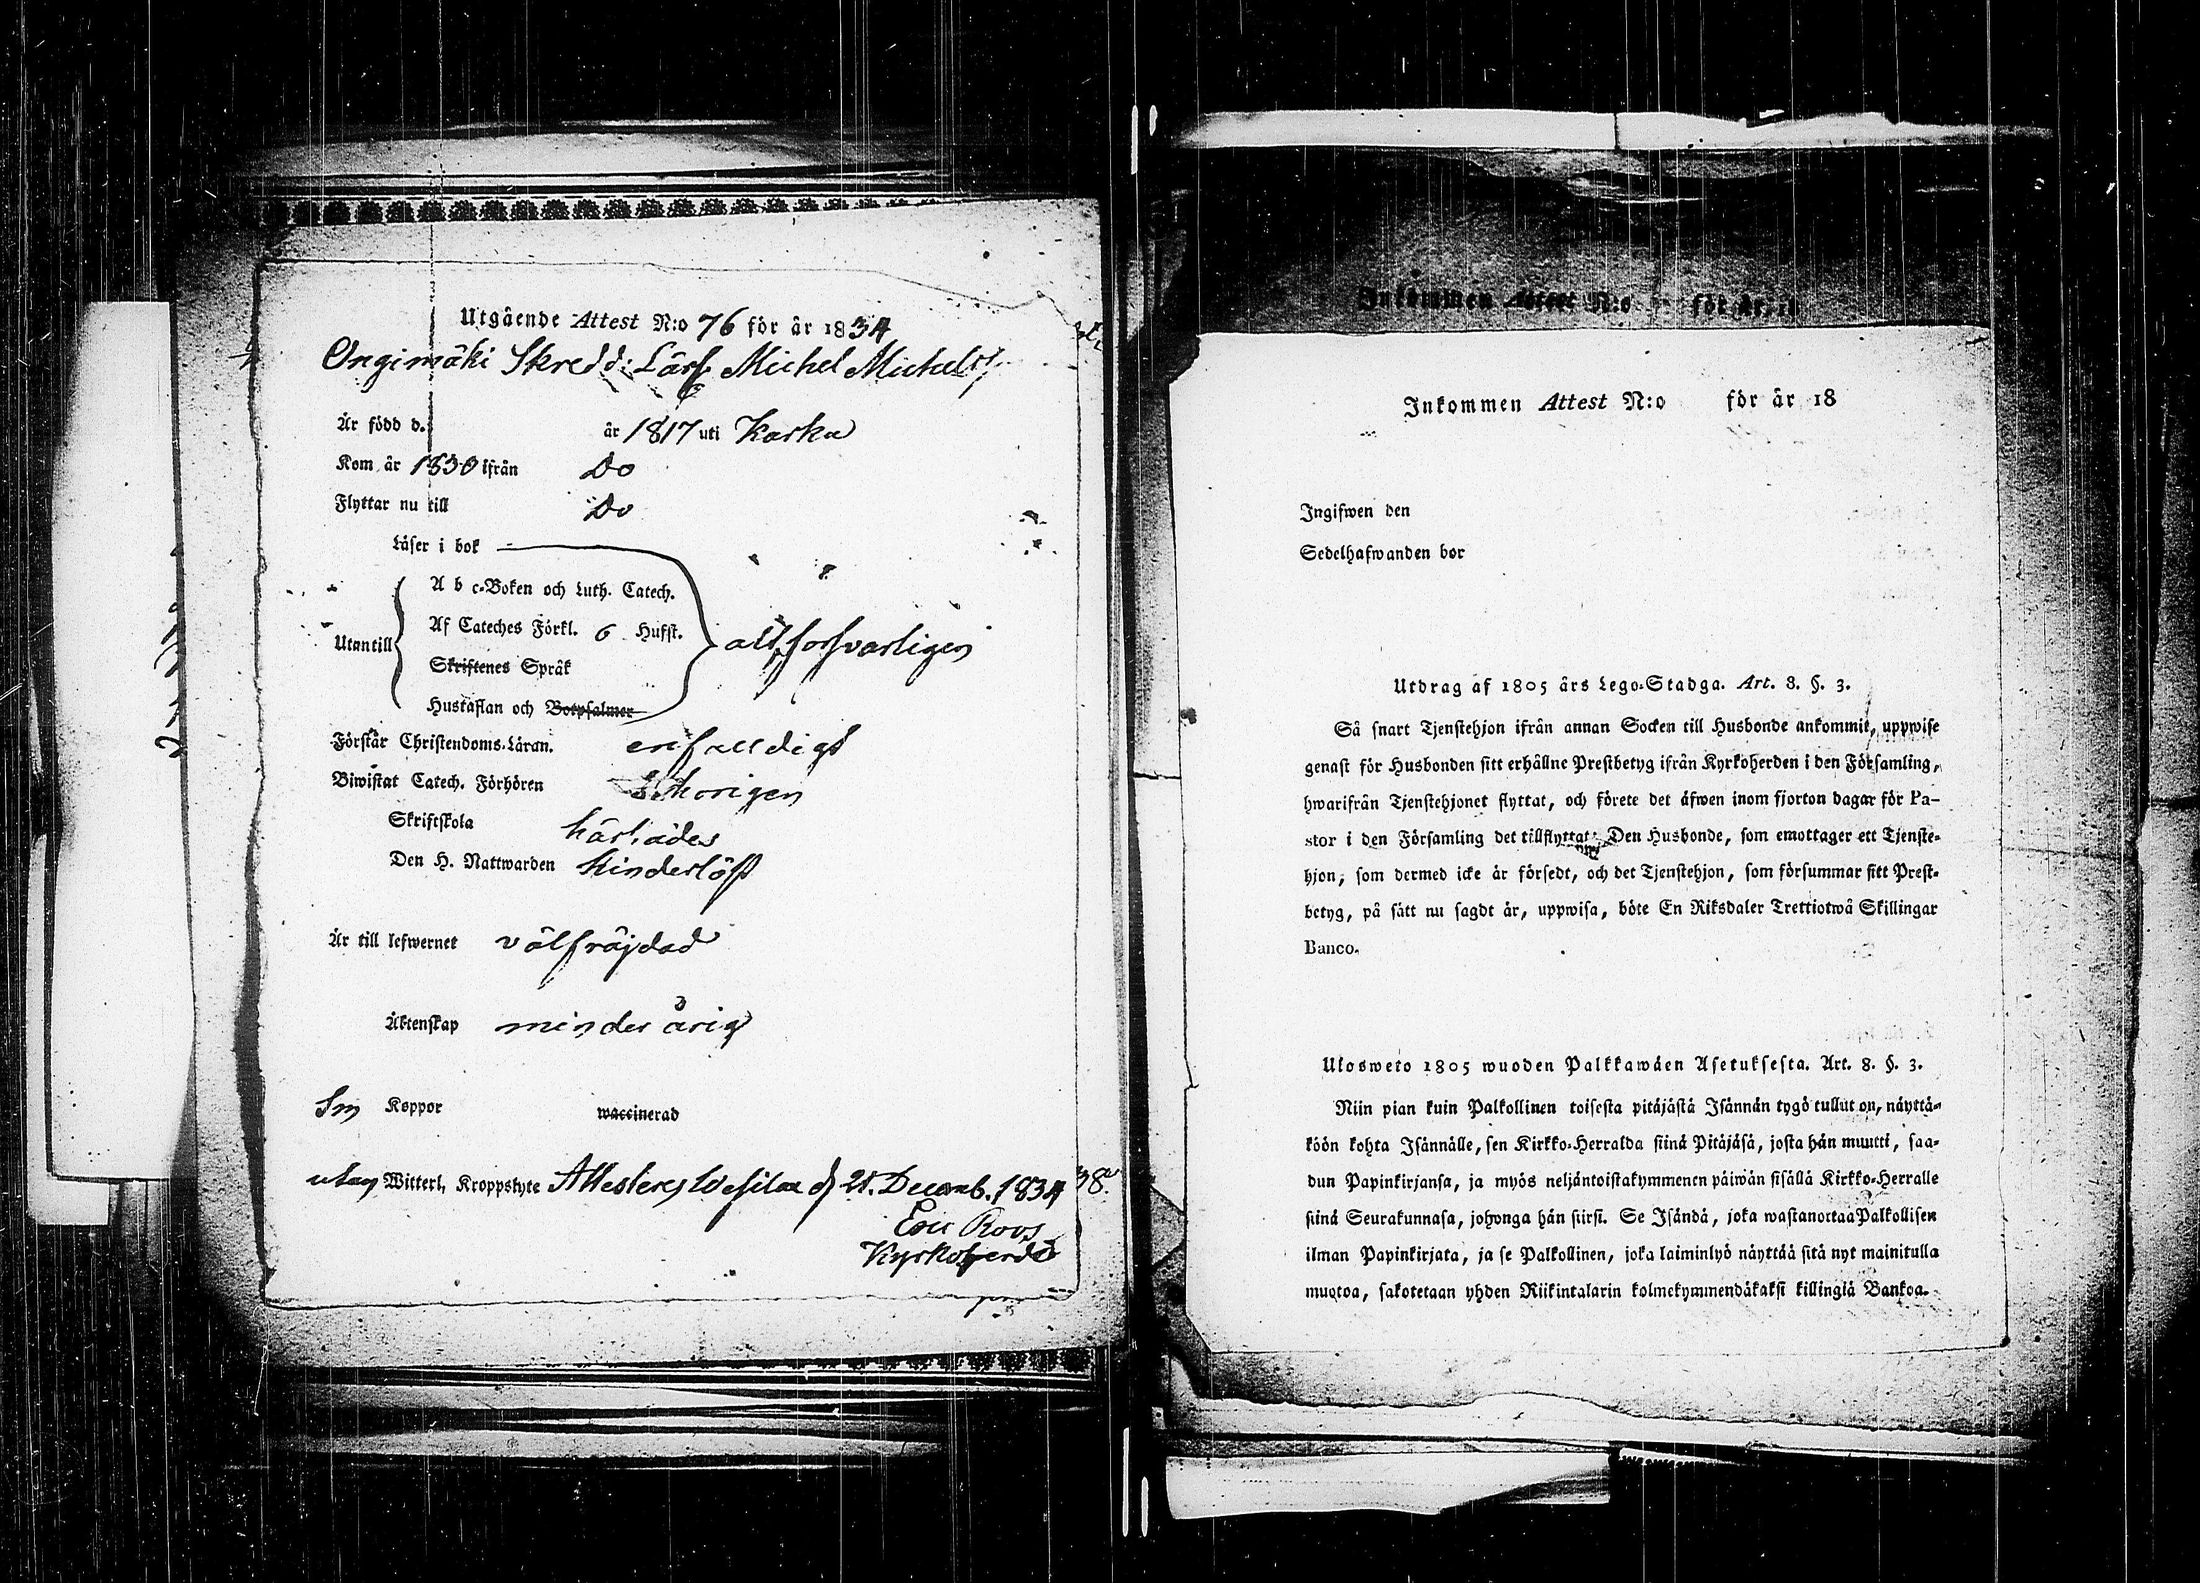 Utgående Attest N:o 76 för år 1834
Ongimäki Skredd: Lärl. Michel Michels
Är född d. år 1817 uti Karku
Kom år 1830 ifrån Do
Flyttar nu till Do
Läser i bok
A b c-Boken och Luth. Catech.
Af Cateches Förkl. 6 Hufst.
Utantill allt försvarligen
Skriftenes Språk
Hustaflan och Botpsalmer
Förstår Christendoms-Läran. enfalldigt
Biwistat Catech. Förhören behörigen
Skriftskola härstädes
Den H. Nattwarden hinderlöst
Är till lefwernet välfräjdad
Äktenskap minderårig
Koppor waccinerad
utan Witterl. Kroppslyte Attesteras Wesilax d 21. Decemb. 1834
Eric Roos
Kyrkoherde
Inkommen Attest N:o för år 18
Inkommen Attest N:o för år 18
Ingifwen den
Sedelhafwanden bor
Utdrag af 1805 års Lego-Stadga. Art. 8. §. 3.
Så snart Tjenstehjon ifrån annan Socken till Husbonde ankommit, uppwise
genast för Husbonden sitt erhållne Prestbetyg ifrån Kyrkoherden i den Församling,
hwarifrån Tjenstehjonet flyttat, och förete det äfwen inom fjorton dagar för Pa-
stor i den Församling det tillflyttat. Den Husbonde, som emottager ett Tjenste-
hjon, som dermed icke är försedt, och det Tjenstehjon, som försummar sitt Prest-
betyg, på sätt nu sagdt är, uppwisa, böte En Riksdaler Trettiotwå Skillingar
Banco.
Ulosweto 1805 wuoden Palkkawäen Asetuksesta. Art. 8. §. 3.
Niin pian kuin Palkollinen toisesta pitäjästä Isännän tygö tullut on, näyttä-
köön kohta Isännälle, sen Kirkko-Herralda siinä Pitäjäsä, josta hän muutti, saa-
dun Papinkirjansa, ja myös neljäntoistakymmenen päiwän sisällä Kirkko-Herralle
siinä Seurakunnasa, johonga hän siirsi. Se Isändä, joka wastanottaa Palkollisen
ilman Papinkirjata, ja se Palkollinen, joka laiminlyö näyttää sitä nyt mainitulla
muotoa, sakotetaan yhden Riikintalarin kolmekymmendäkaksi killingiä Bankoa.